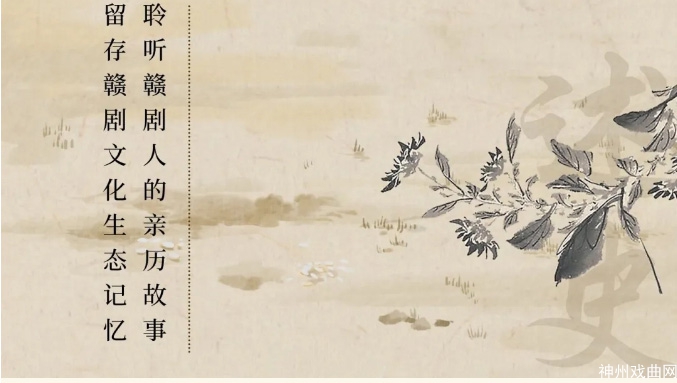 聆听赣剧人的亲历故事
留存赣剧文化生态记忆
述史
神州戏曲网